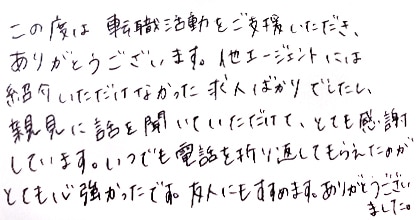 この度は 転職活動をご支援いただき、
ありがとうございます。他エージェントには
紹介いただけなかった求人ばかりでしたし、
親見に話を聞いていただけて、とても感謝
しています。いつでも電話を折り返してもらえたのが
とても心強かったです。友人にもすすめます。ありがとうござい
ました。